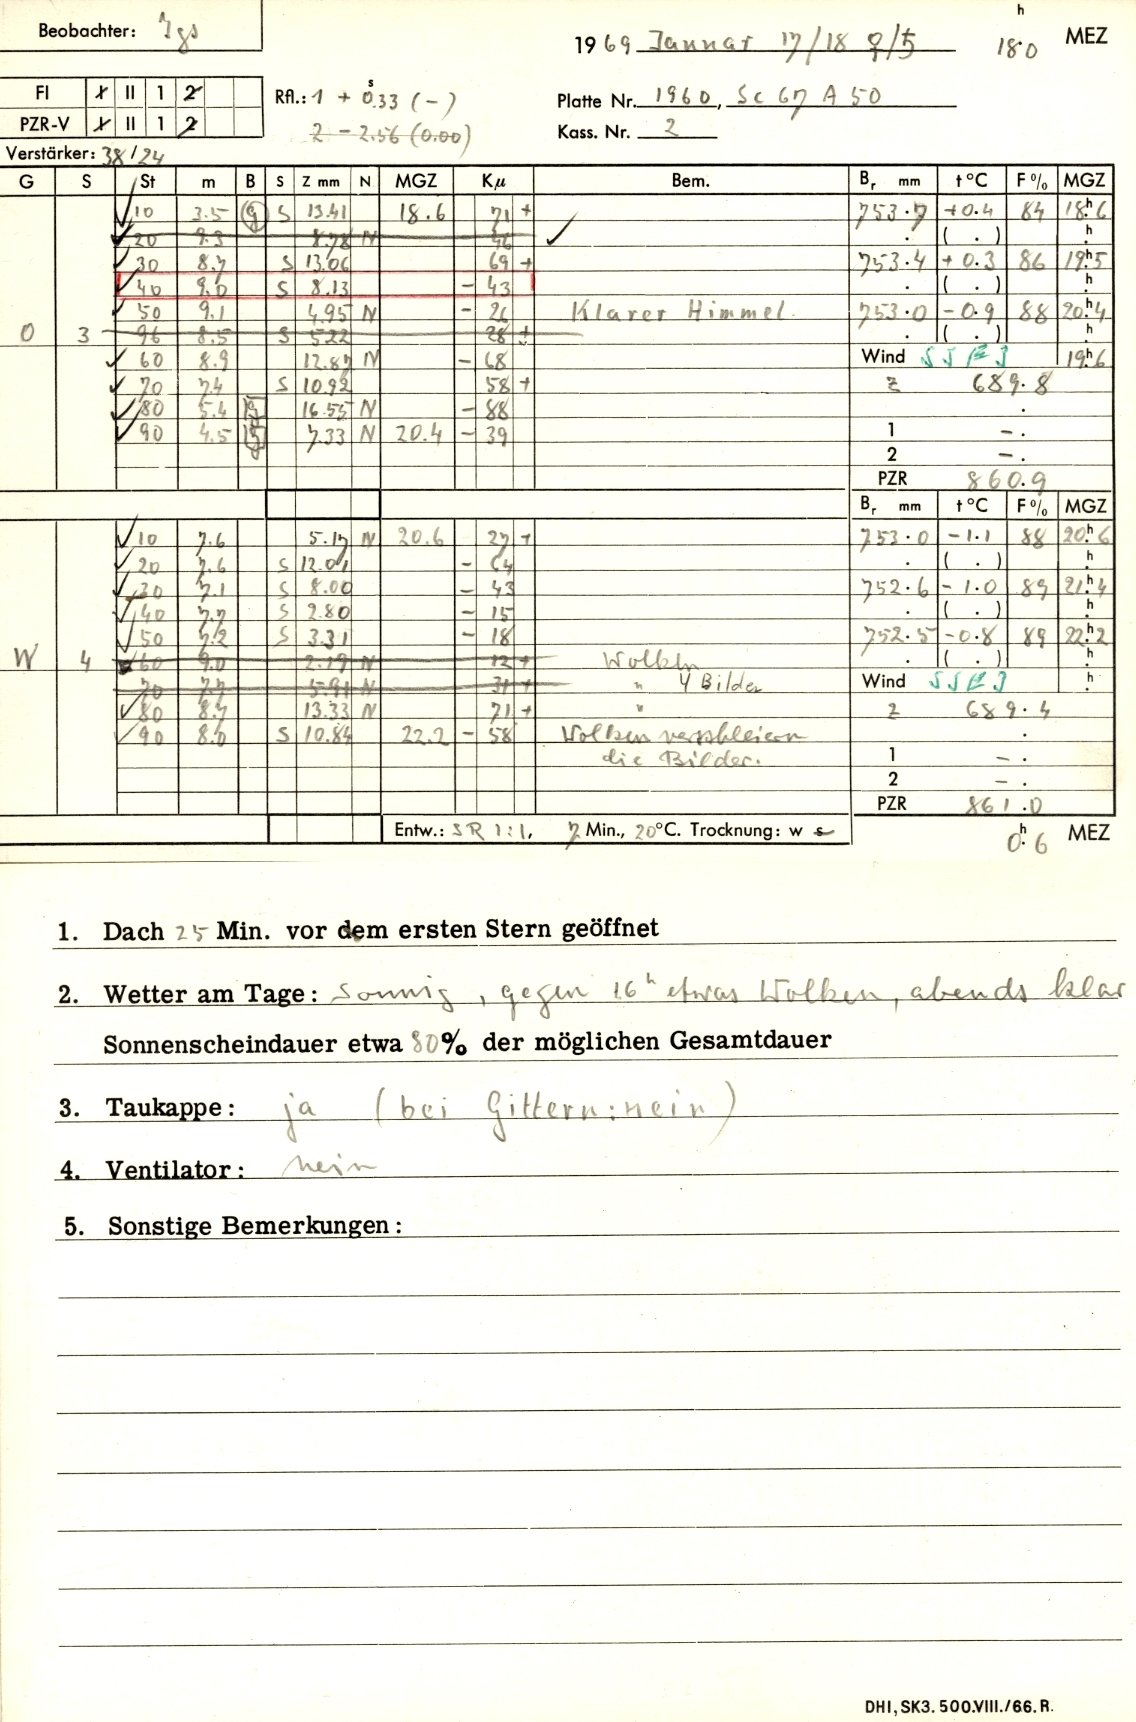 Beobachter: Jgs
h
1969 Januar 17/18 ♀/♄ 18.0 MEZ
FI I II 1 2
PZR-V I II 1 2
Rfl.: 1 + 0.33 (-)
s
2 - 2.56 (0.00)
Platte Nr. 1960, Sc 67 A 50
Kass. Nr. 2
Verstärker: 38/24
G S St m B S Z mm N MGZ Kμ Bem. Br mm t°C F% MGZ
10 3.5 g S 13.41 18.6 71 + 753.7 +0.4 84 18h6
20 9.3 8.78 N 46 ( . ) h
30 8.7 S 13.06 69 + 753.4 +0.3 86 19h5
40 9.0 S 8.13 - 43 ( . ) h
50 9.1 4.95 N - 26 Klarer Himmel 753.0 -0.9 88 20h4
O 3 96 8.5 S 5.22 28 + ( . ) h
60 8.9 12.87 N - 68 Wind SSE 3 19h6
70 7.4 S 10.92 58 + z 689.8
80 5.4 g 16.55 N - 88 .
90 4.5 g 7.33 N 20.4 - 39 1 - .
2 - .
PZR 860.9
Br mm t°C F% MGZ
10 7.6 5.17 N 20.6 27 + 753.0 -1.1 88 20h6
20 7.6 S 12.01 - 64 ( . ) h
30 7.1 S 8.00 - 43 752.6 -1.0 89 21h4
40 7.7 S 2.80 - 15 ( . ) h
50 7.2 S 3.31 - 18 752.5 -0.8 89 22h2
W 4 60 9.0 2.19 N 12 + Wolken ( . ) h
70 7.7 5.91 N 31 + " 4 Bilder Wind SSE 3 h
80 8.7 13.33 N 71 + " z 689.4
90 8.0 S 10.84 22.2 - 58 Wolken verschleiern .
die Bilder. 1 - .
2 - .
PZR 861.0
Entw.: SR 1:1, 7 Min., 20°C. Trocknung: w s 0h6 MEZ
1. Dach 25 Min. vor dem ersten Stern geöffnet
2. Wetter am Tage: sonnig, gegen 16h etwas Wolken, abends klar
Sonnenscheindauer etwa 80% der möglichen Gesamtdauer
3. Taukappe: ja (bei Gittern: nein)
4. Ventilator: nein
5. Sonstige Bemerkungen:
DHI, SK3. 500.VIII./66. R.